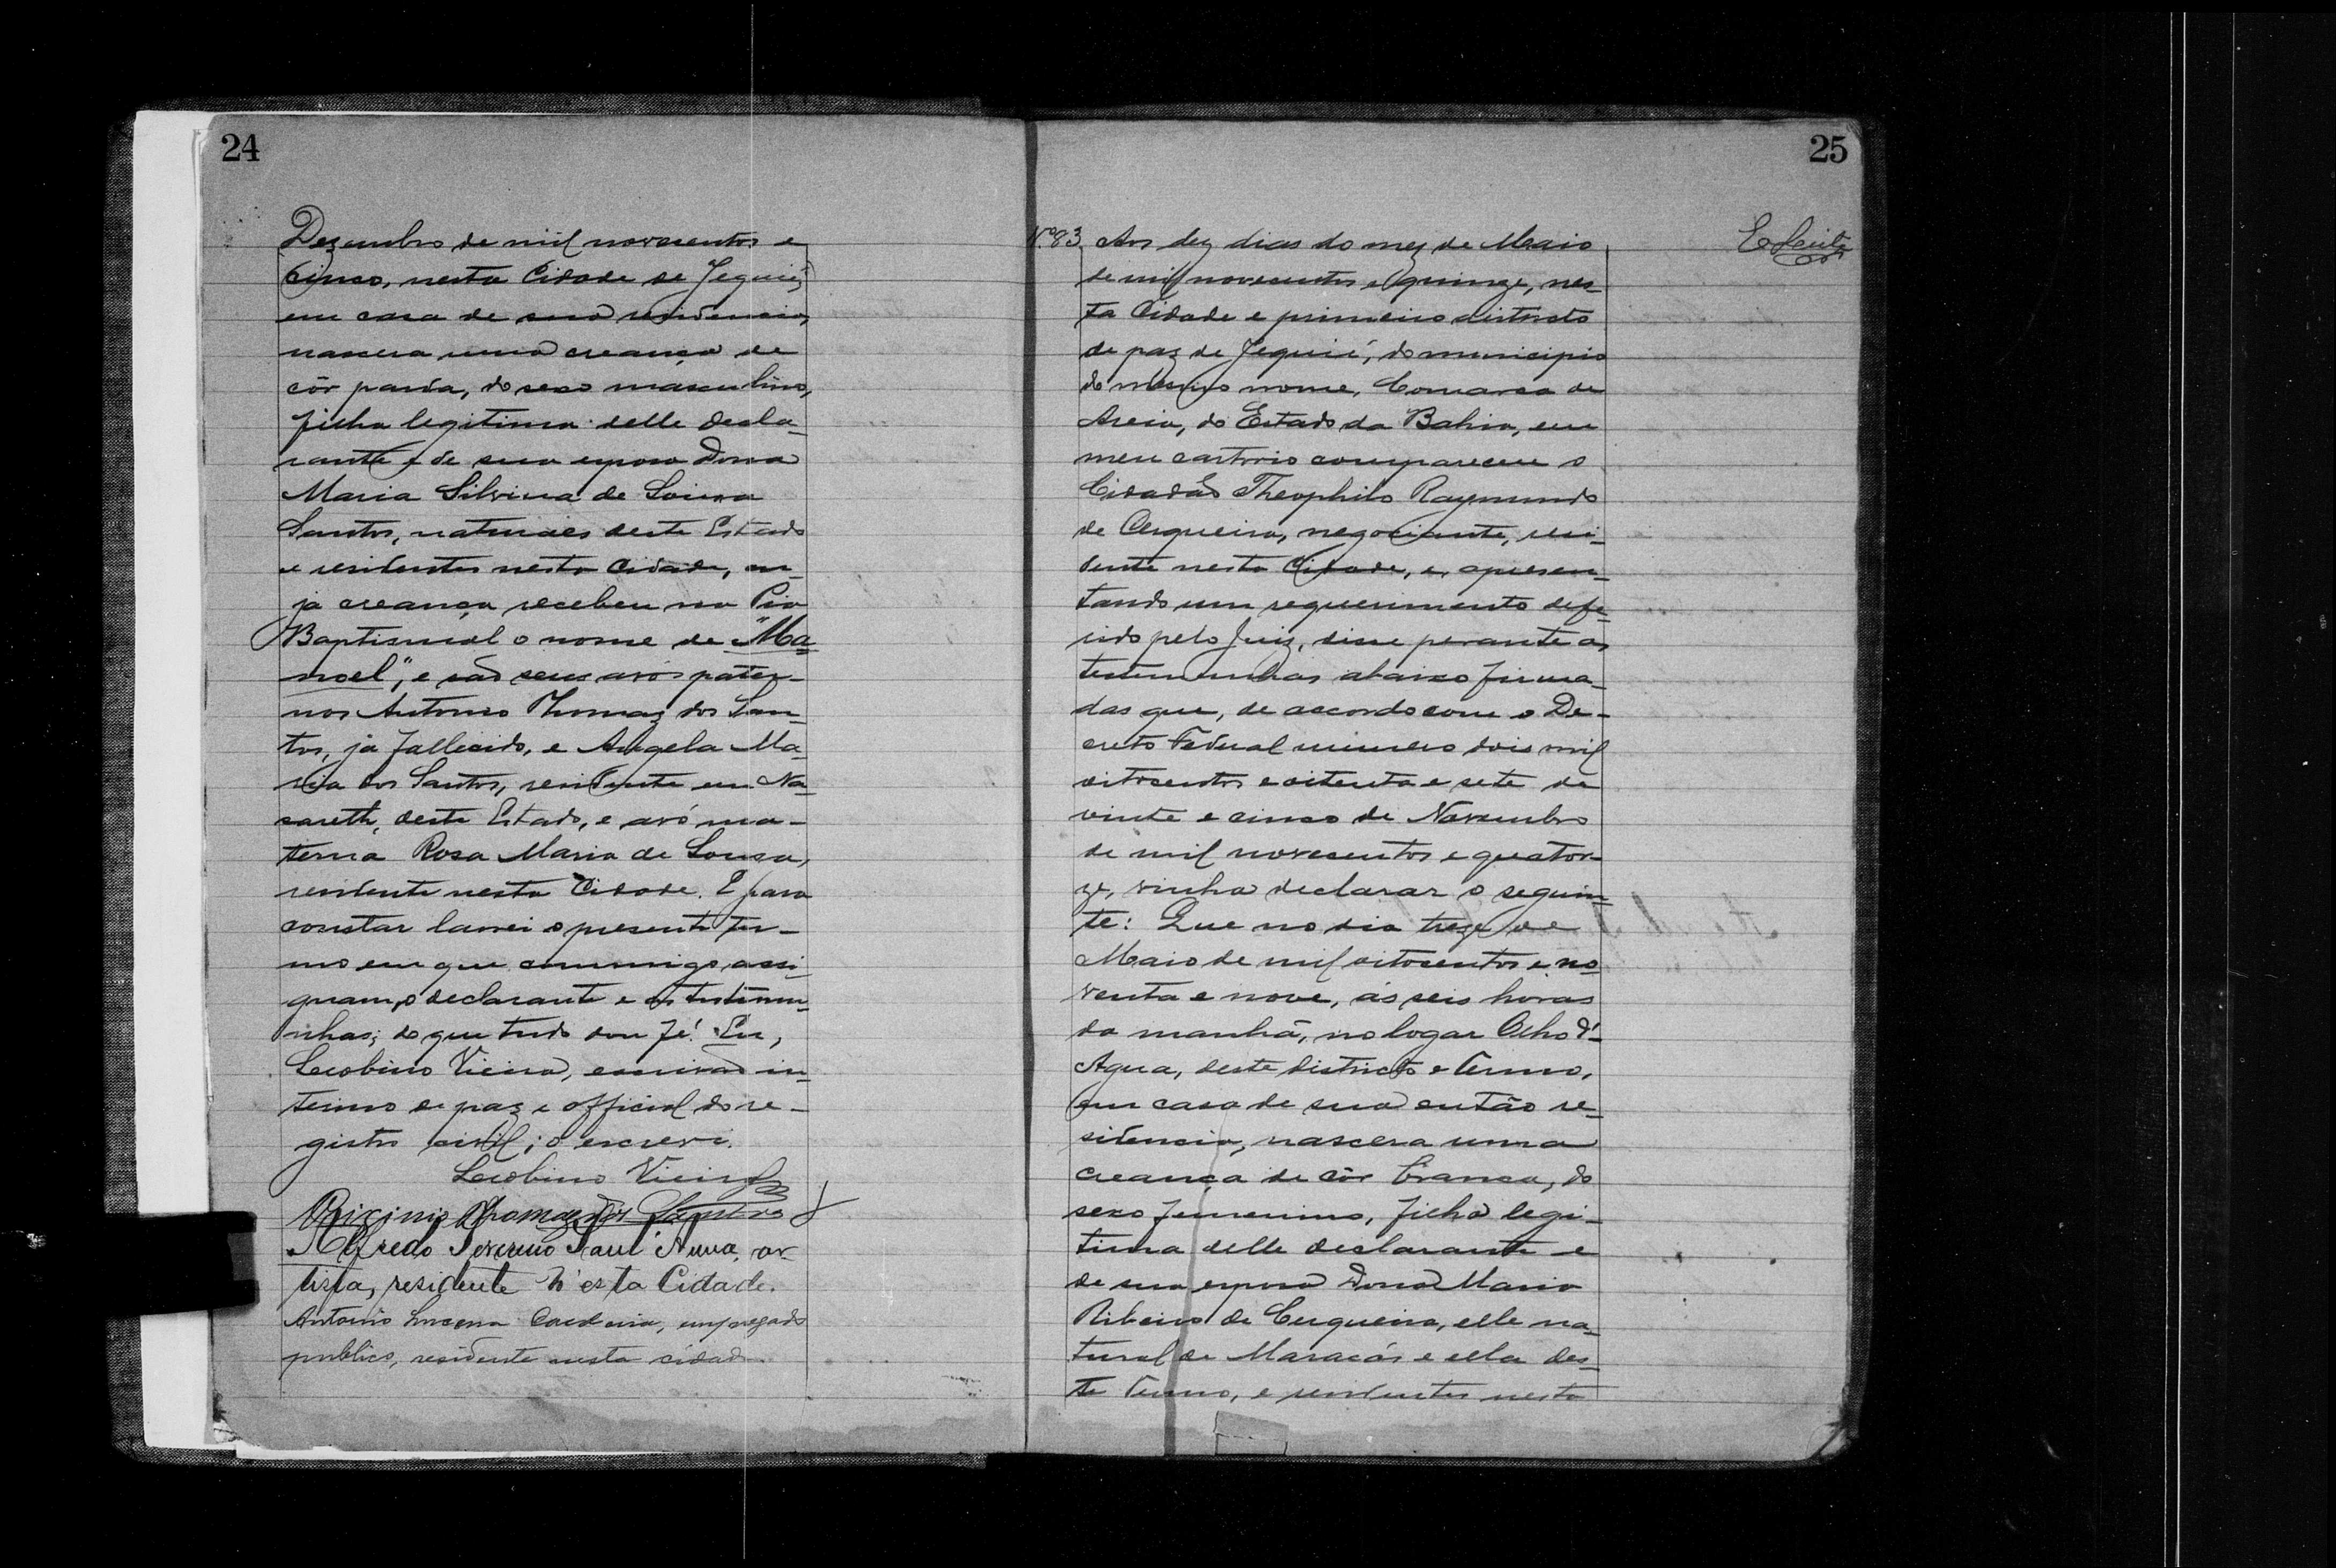 24
Dezembro de mil novecentos e
cinco, nesta Cidade de Jequié,
em casa de sua residencia,
nascera uma creança de
côr parda, do sexo masculino,
filha legitima delle decla-
rante e de sua esposa Dona
Maria Silvina de Souza
Santos, naturaes deste Estado
e residentes nesta Cidade, cu-
ja creança recebeu na Pia
Baptismal o nome de "Ma-
noel", e são seus avós pater-
nos Antonio Thomaz dos San-
tos, já fallecido, e Angela Ma-
ria dos Santos, residente em Na-
sareth, deste Estado, e avó ma-
terna Rosa Maria de Souza,
residente nesta Cidade. E para
constar lavrei o presente ter-
mo em que commigo assi-
gnam, o declarante e as testemu-
nhas; do que tudo dou fé. Eu,
Leobino Vieira, escrivão in-
terino de paz e official do re-
gistro civil; o escrevi.
Leobino Vieira
Thomaz dos Santos
Alfredo Severino Sant'Anna, ar-
tista, residente n'esta Cidade.
Antonio Lucena Cardeira, empregado
publico, residente nesta cidade.
25
Nº 83 Aos dez dias do mez de Maio
de mil novecentos e quinze, nes-
ta Cidade e primeiro districto
de paz de Jequié, do municipio
do mesmo nome, Comarca de
Areia, do Estado da Bahia, em
meu cartorio compareceu o
Cidadão Theophilo Raymundo
de Cerqueira, negociante, resi-
dente nesta Cidade, e, apresen-
tando um requerimento defe-
rido pelo Juiz, disse perante as
testemunhas abaixo firma-
das que, de accordo com o De-
creto Federal numero dois mil
oitocentos e oitenta e sete de
vinte e cinco de Novembro
de mil novecentos e quator-
ze, vinha declarar o seguin-
te: Que no dia treze de
Maio de mil oitocentos e no-
venta e nove, ás seis horas
da manhã, no logar Olho d'-
Agua, deste districto e termo,
em casa de sua então re-
sidencia, nascera uma
creança de côr branca, do
sexo femenino, filha legi-
tima delle declarante e
de sua esposa Dona Maria
Ribeiro de Cerqueira, elle na-
tural de Maracás e ella des-
te termo, e residentes nesta